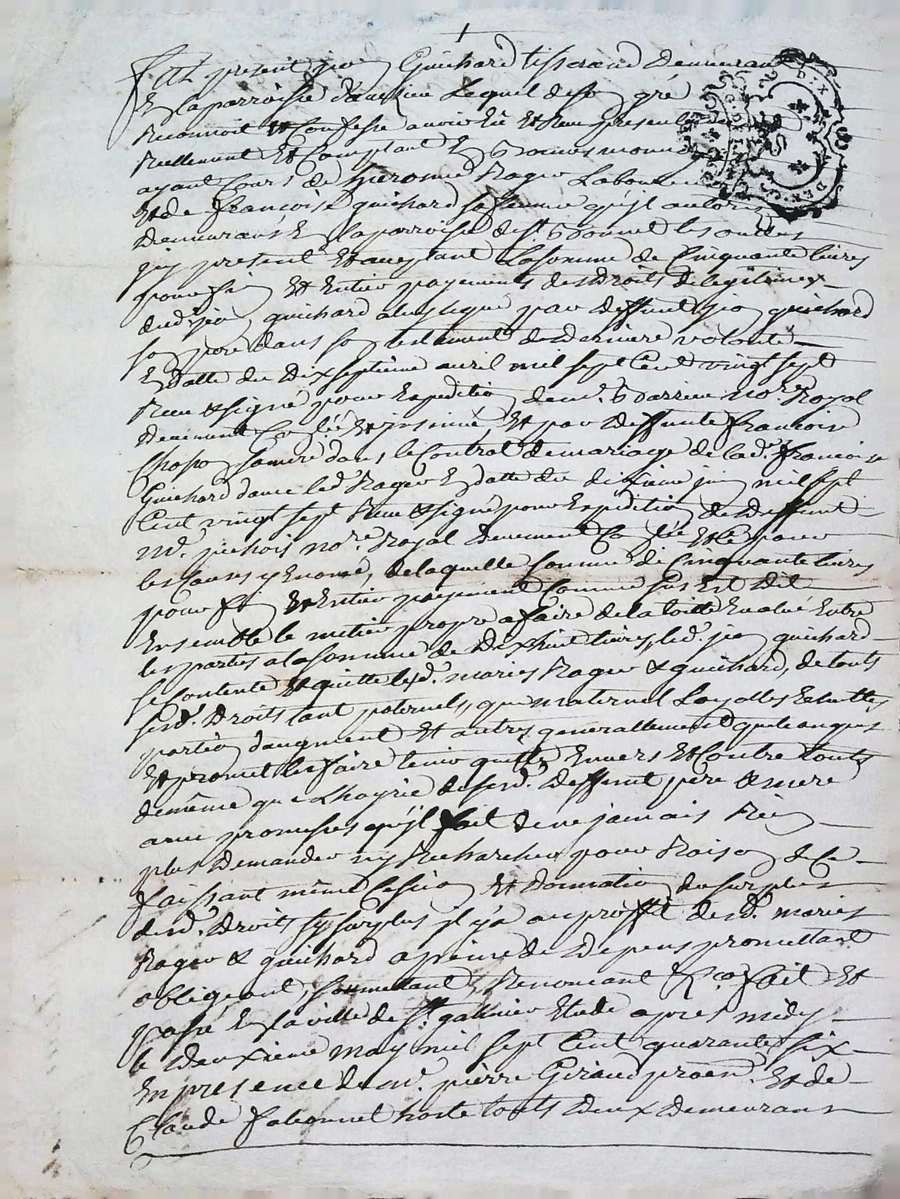 fut present jean Guichard tisserand demeurant
En la parroisse Lequel de son gré
Reconnoit et Confesse avoir Eu et Reçu presentement
Reellement Et Comptant En bonnes monnoyes
ayant Cours de hierosme Roger Laboureur
Et de françoise guichard sa femme qu'jl autorise
demeurans En la parroisse de st bonnet les oules
jcy present Et acceptant La somme de Cinquante livres
pour fin Et Entier payement des Droits de legitimes
dud. jean guichard a luy legué par deffunt jean guichard
son pere dans son testament de derniere volonté
En datte du Dix septieme avril mil sept Cent vingt sept
Reçu & signé pour Expedition de me. barrieu nore. Royal
deuement Con.lé Et jnsinué Et par deffunte françoise
Chapo sa mere dans le Contrat de mariage de lad. françoise
Guichard avec led. Roger En datte du dixieme juin mil sept
Cent vingt sept Reçu & signé pour Expedition de deffunt
me. nore. Royal deuement Con.lé Et Ce pour
les Causes y Enoncé, de laquelle somme de Cinquante livres
pour fin Et Entier payement Comme sus Est dit
Ensemble le metier propre a faire de la toille Evalué Entre
les parties a la somme de dix huit livres, led. jean guichard
se Contente Et quitte lesd. mariés Roger & guichard, de touts
sesd. Droits tant paternels, que maternel Loyalles Echuttes
portion d'augment Et autres generallement quelconques
Et promet les faire tenir quitte Envers Et Contre touts
de même que L'hoyrie de sesd. deffunt pere & mere
avec promesses qu'jl fait de ne jamais Rien
plus demander ny Rechercher pour Raison de Ce
faissant même Cession Et donnation du surplus
desd. Droits sy surplus jl y a au proffit desd. mariés
Roger & guichard a peine de depens promettant
obligeant, soumettant, Renoncant &ca. fait Et
passé En la ville de st. galmier Etude apres midy
le deuxieme may mil sept Cent quarante six
En presence de me. pierre Giraud Et de
Claude hoste touts deux demeurans